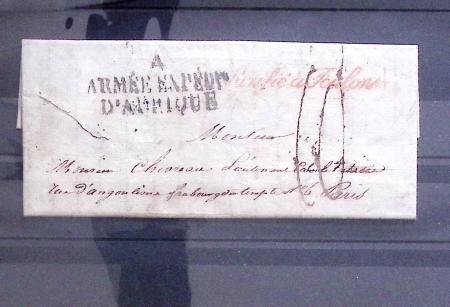 A
ARMÉE EXPÉDre
D'AFRIQUE
Purifié à Toulon
Monsieur
Monsieur Lieutenant Colonel
rue d'angoulême faubourg du temple Paris